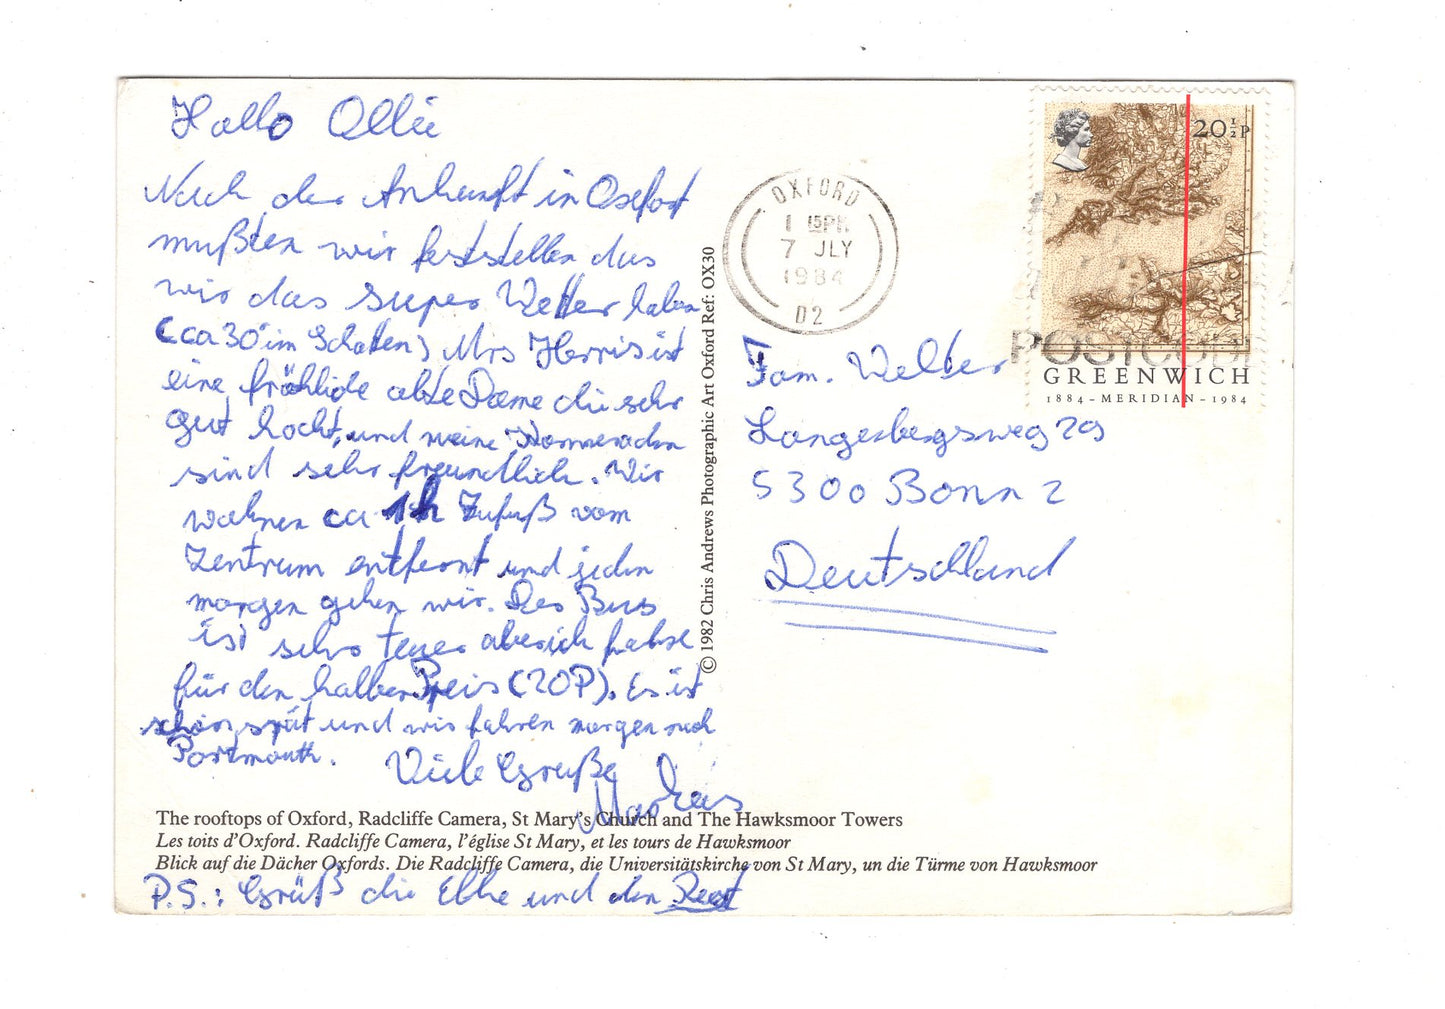 Hallo Ollie
Nach der Ankunft in Oxford
mußten wir feststellen das
wir das super Wetter haben
(ca 30° im Schatten) Mrs Harris ist
eine fröhliche alte Dame die sehr
gut kocht, und meine Kammeraden
sind sehr freundlich. Wir
wohnen ca 1h Zufuß vom
Zentrum entfernt und jeden
morgen gehen wir. Der Bus
ist sehr teuer aber ich fahre
für den halben Preis (20P). Es ist
schon spät und wir fahren morgen nach
Portmouth.
Viele Grüße
Markus
P.S.: Grüß die Elke und den Rest
© 1982 Chris Andrews Photographic Art Oxford Ref: OX30
OXFORD
1 15PM
7 JLY
1984
D2
20½P
POSTCODE
GREENWICH
1884 – MERIDIAN – 1984
Fam. Welter
5300 Bonn 2
Deutschland
The rooftops of Oxford, Radcliffe Camera, St Mary's Church and The Hawksmoor Towers
Les toits d'Oxford. Radcliffe Camera, l'église St Mary, et les tours de Hawksmoor
Blick auf die Dächer Oxfords. Die Radcliffe Camera, die Universitätskirche von St Mary, un die Türme von Hawksmoor